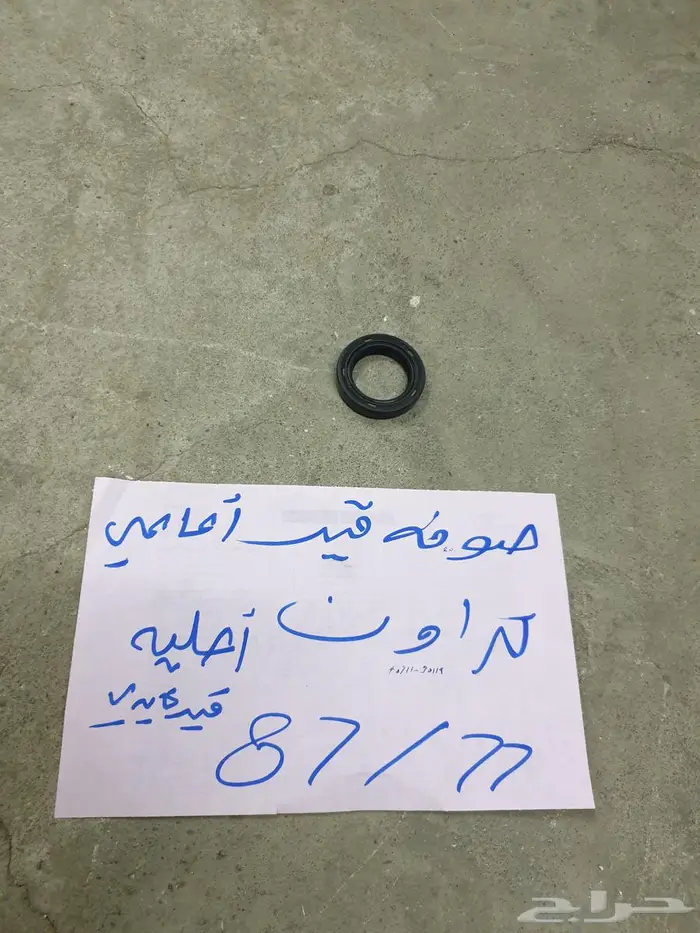 صوفه قير أمامي
كراون أصليه
40311-30119
قير عادي
87/77
حراج